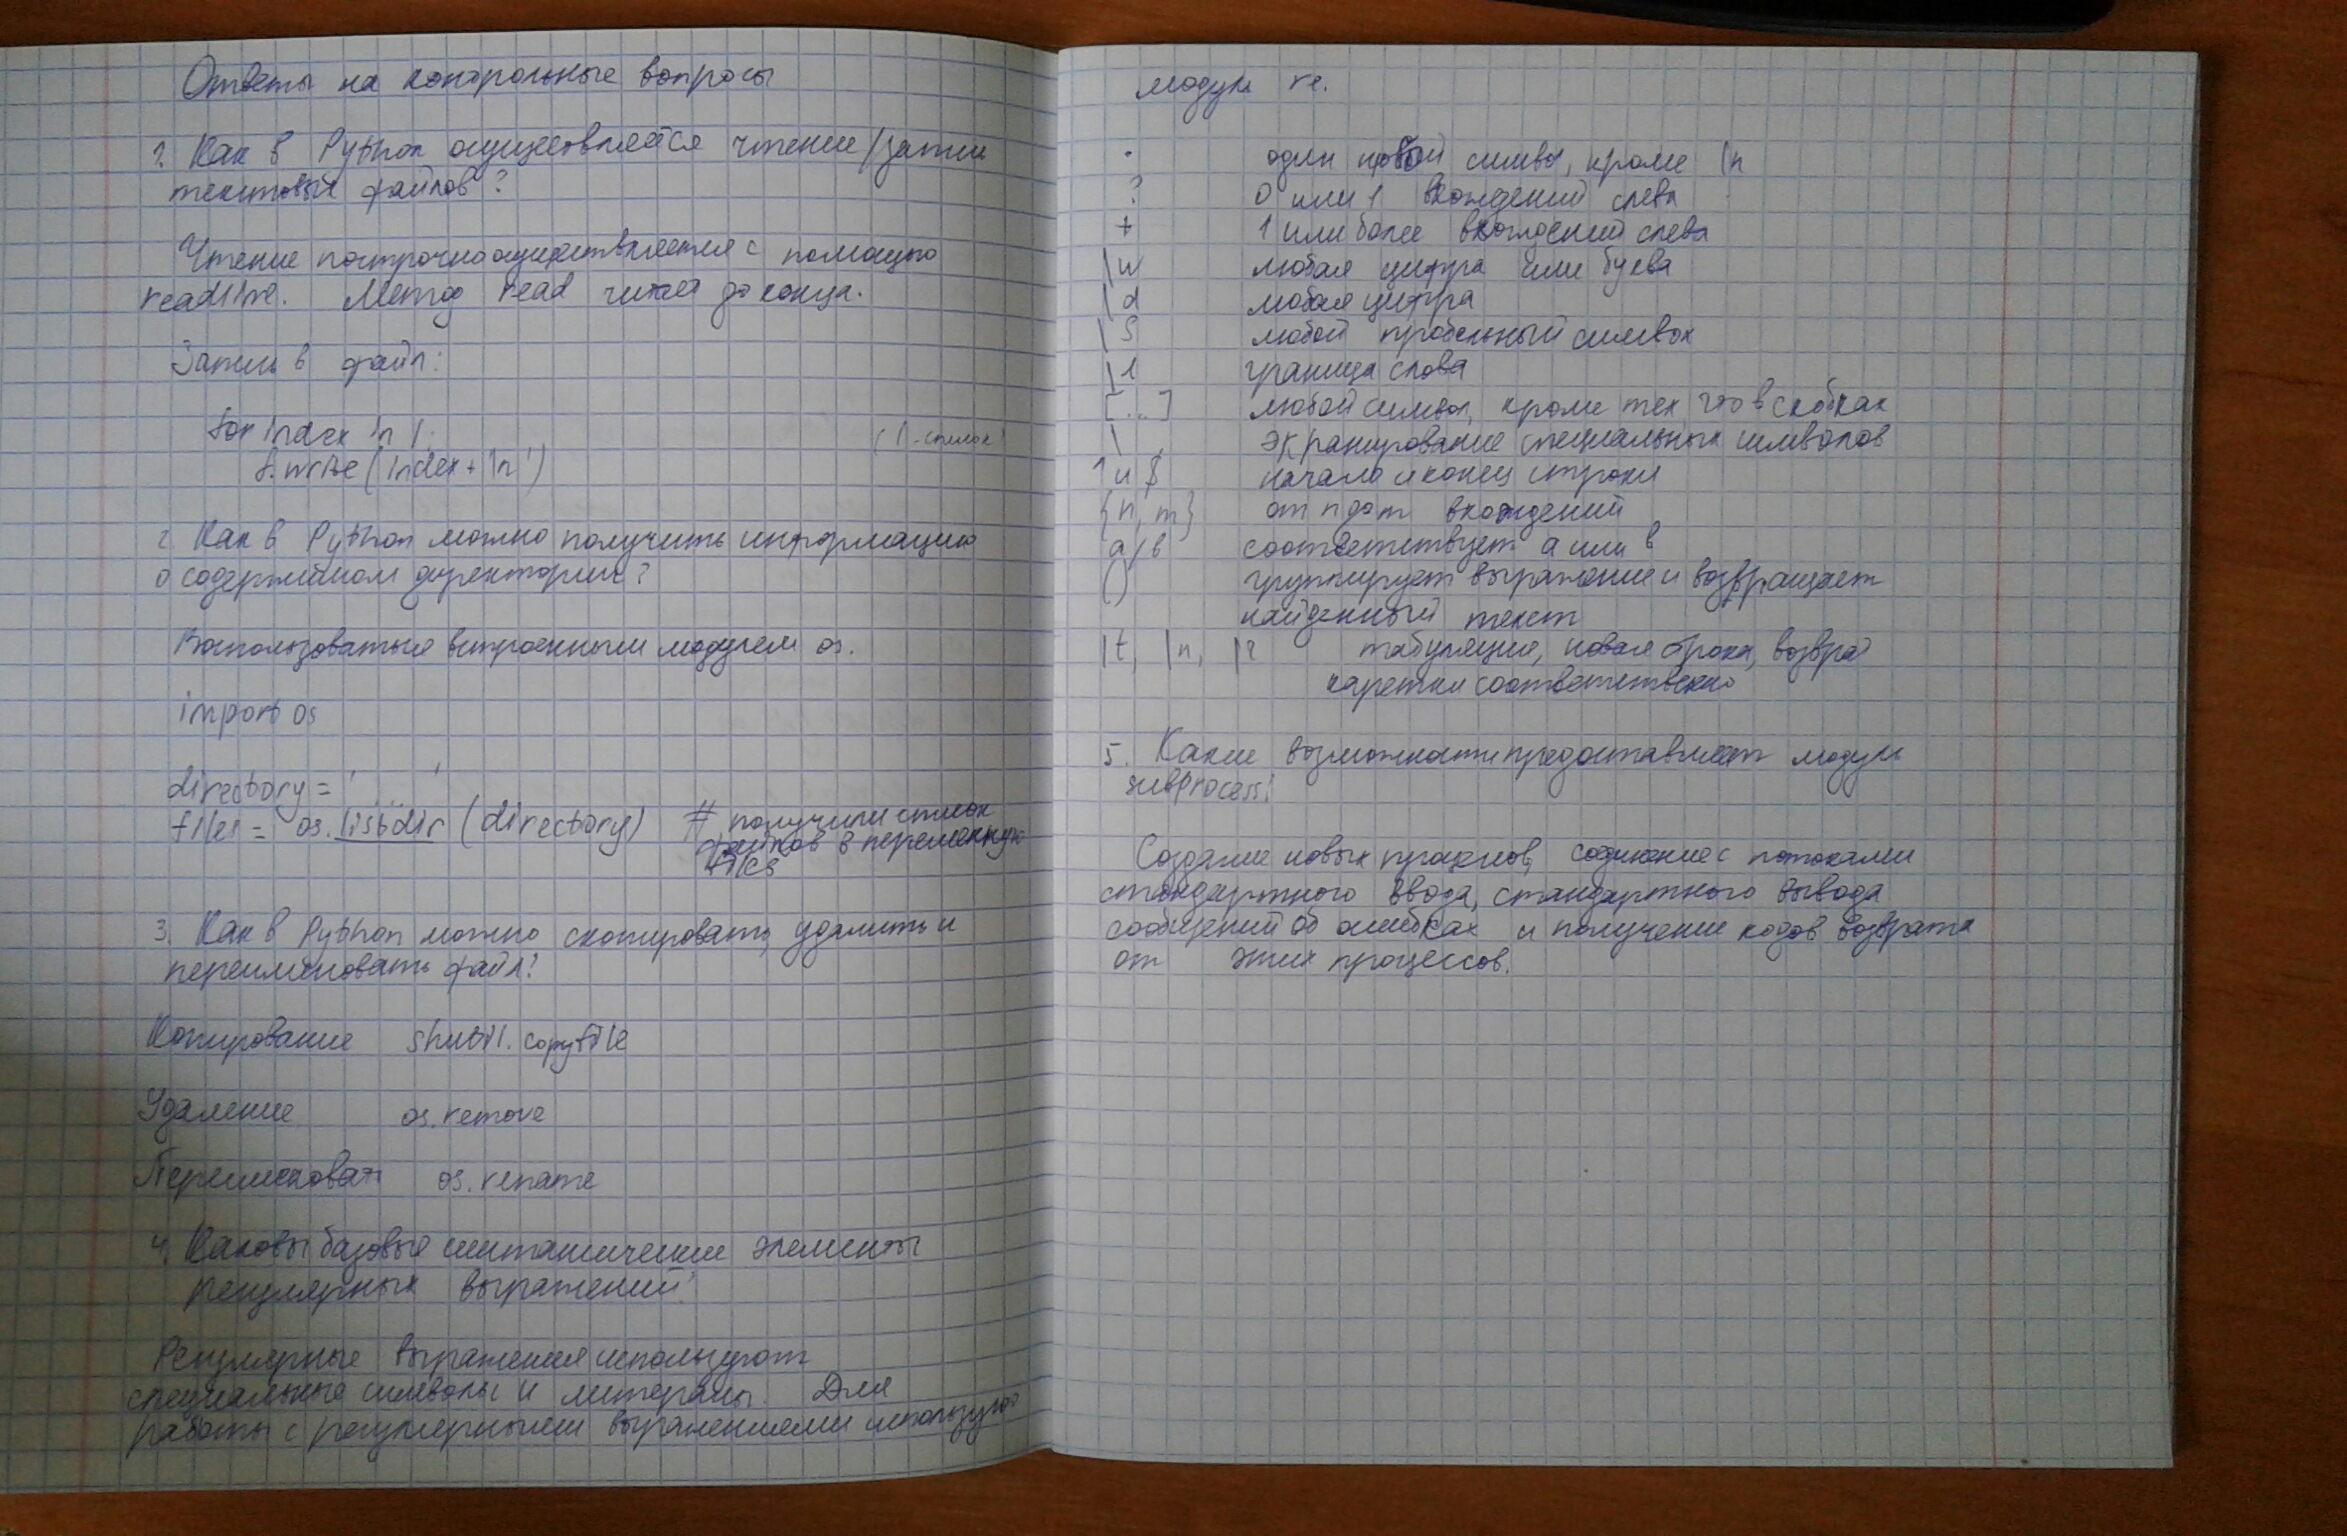 Ответы на контрольные вопросы
1. Как в Python осуществляется чтение/запись
текстовых файлов?
Чтение построчно осуществляется с помощью
readline. Метод read читает до конца.
Запись в файл:
for index in l: (l - список)
f.write(index + '\n')
2. Как в Python можно получить информацию
о содержимом директории?
Воспользоваться встроенным модулем os.
import os
directory = '......'
files = os.listdir(directory) # получили список
файлов в переменную
files
3. Как в Python можно скопировать, удалить и
переименовать файл?
Копирование shutil.copyfile
Удаление os.remove
Переименовать os.rename
4. Каковы базовые синтаксические элементы
регулярных выражений?
Регулярные выражения используют
специальные символы и литералы. Для
работы с регулярными выражениями используют
модуль re.
. один любой символ, кроме \n
? 0 или 1 вхождений слева
+ 1 или более вхождений слева
\w любая цифра или буква
\d любая цифра
\s любой пробельный символ
граница слова
[...] любой символ, кроме тех что в скобках
\ экранирование специальных символов
^ и $ начало и конец строки
{n, m} от n до m вхождений
a|b соответствует a или b
() группирует выражение и возвращает
найденный текст
\t, \n, \r табуляция, новая строка, возврат
каретки соответственно
5. Какие возможности предоставляет модуль
subprocess?
Создание новых процессов, соединение с потоками
стандартного ввода, стандартного вывода
сообщений об ошибках и получение кодов возврата
от этих процессов.